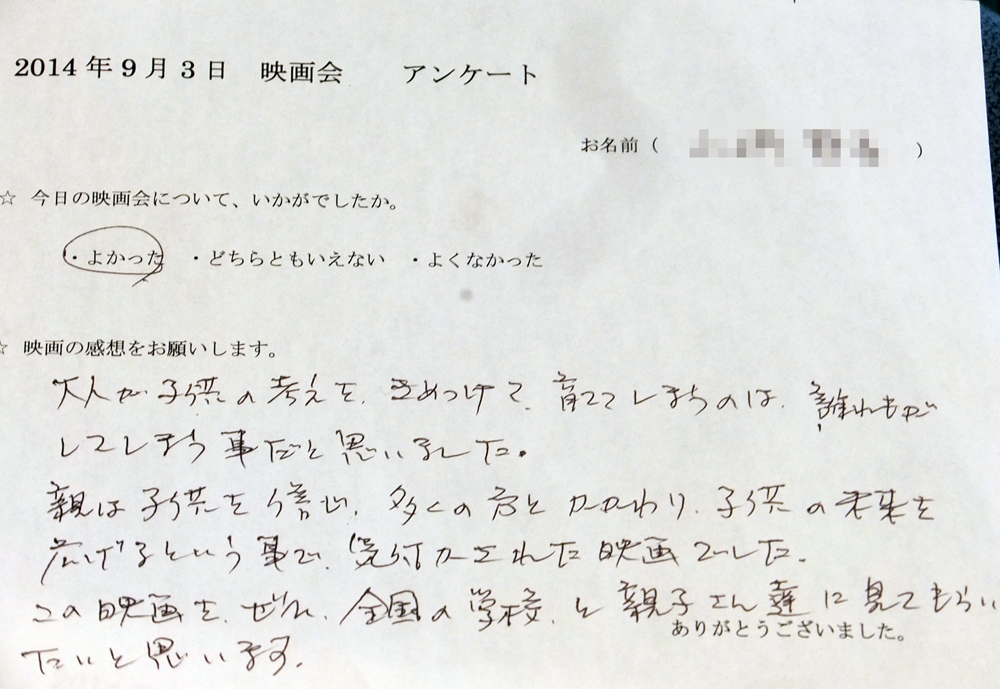 2014年9月3日 映画会 アンケート
お名前（ ）
☆ 今日の映画会について、いかがでしたか。
・よかった ・どちらともいえない ・よくなかった
☆ 映画の感想をお願いします。
大人が子供の考えを、きめつけて、育ててしまうのは、誰れもが
してしまう事だと思いました。
親は子供を信じ、多くの方とかかわり、子供の未来を
広げるという事で、気付かされた映画でした。
この映画を、ぜひ、全国の学校、と親子さん達に見てもらい
ありがとうございました。
たいと思います。